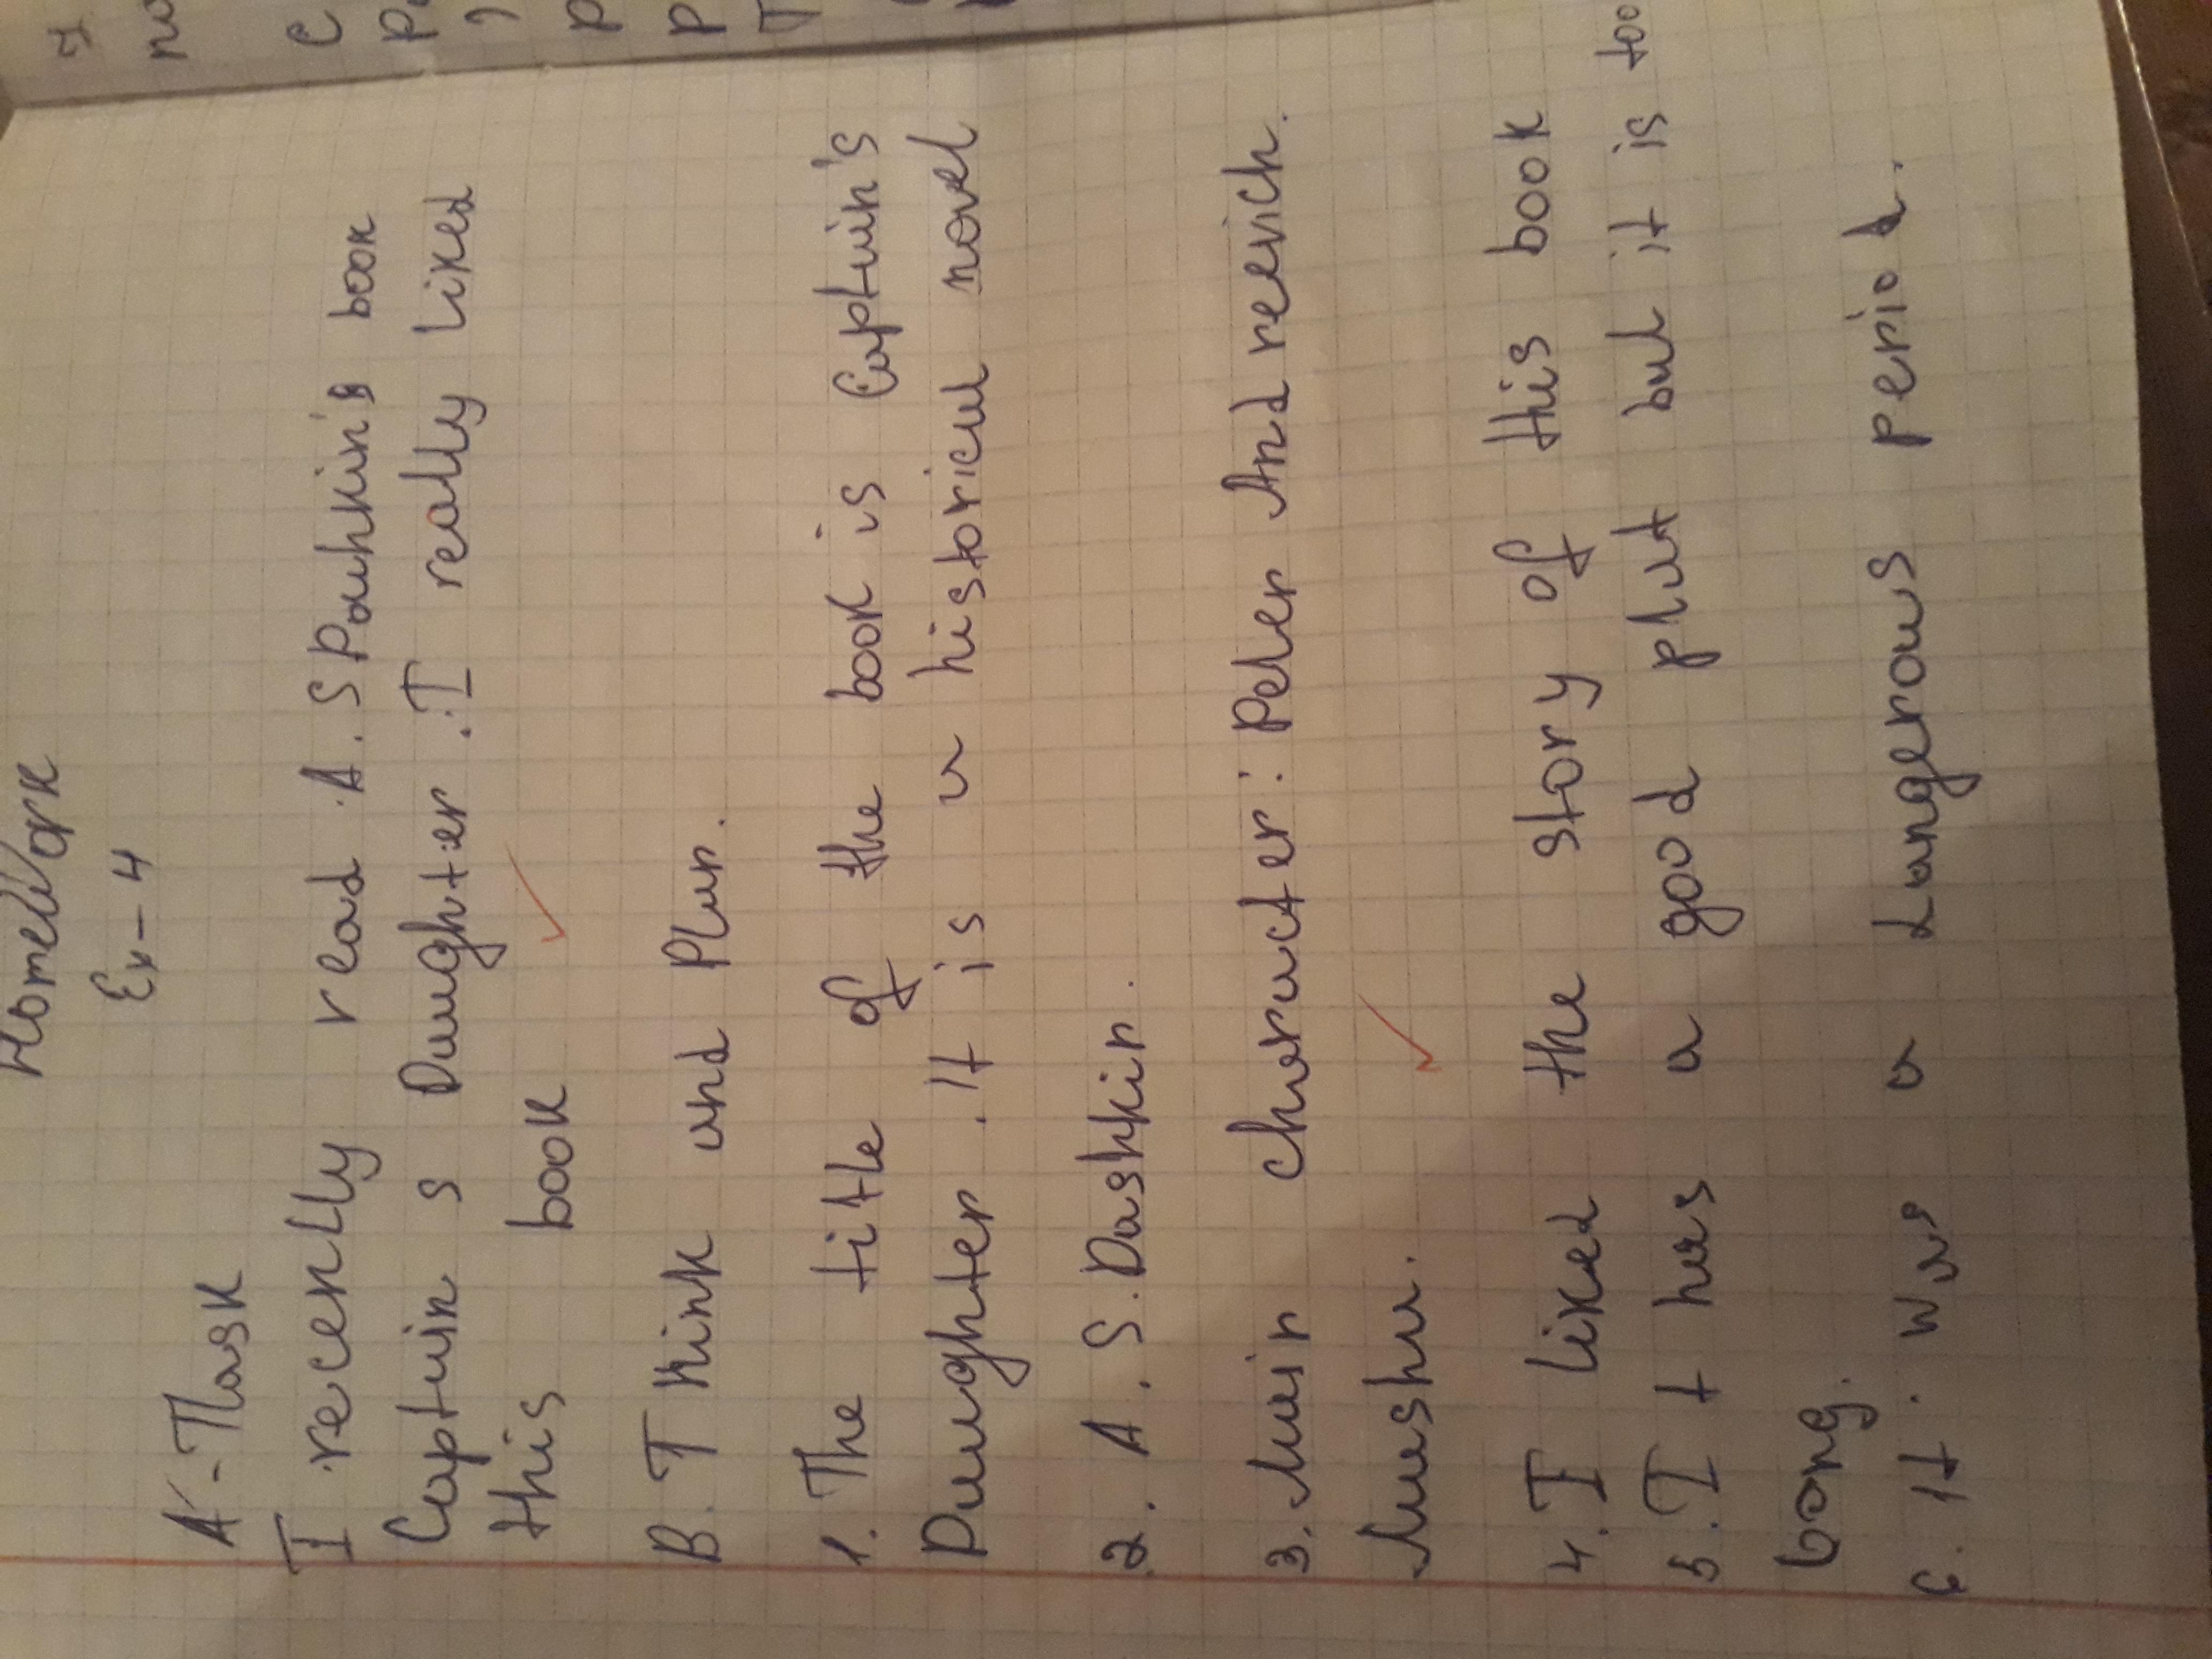 HomeWork
Ex-4
A-Task
I recently read A. S Pouhkin's book
Captain s Daughter. I really liked
this book
B. Think and Plan.
1. The title of the book is Captain's
Daughter. It is a historical novel
2. A. S. Dashkin.
3. Main character: Peter Andreevich.
Masha.
4. I liked the story of this book
5. It has a good plut but it is too
long.
6. It. was a dangerous period.